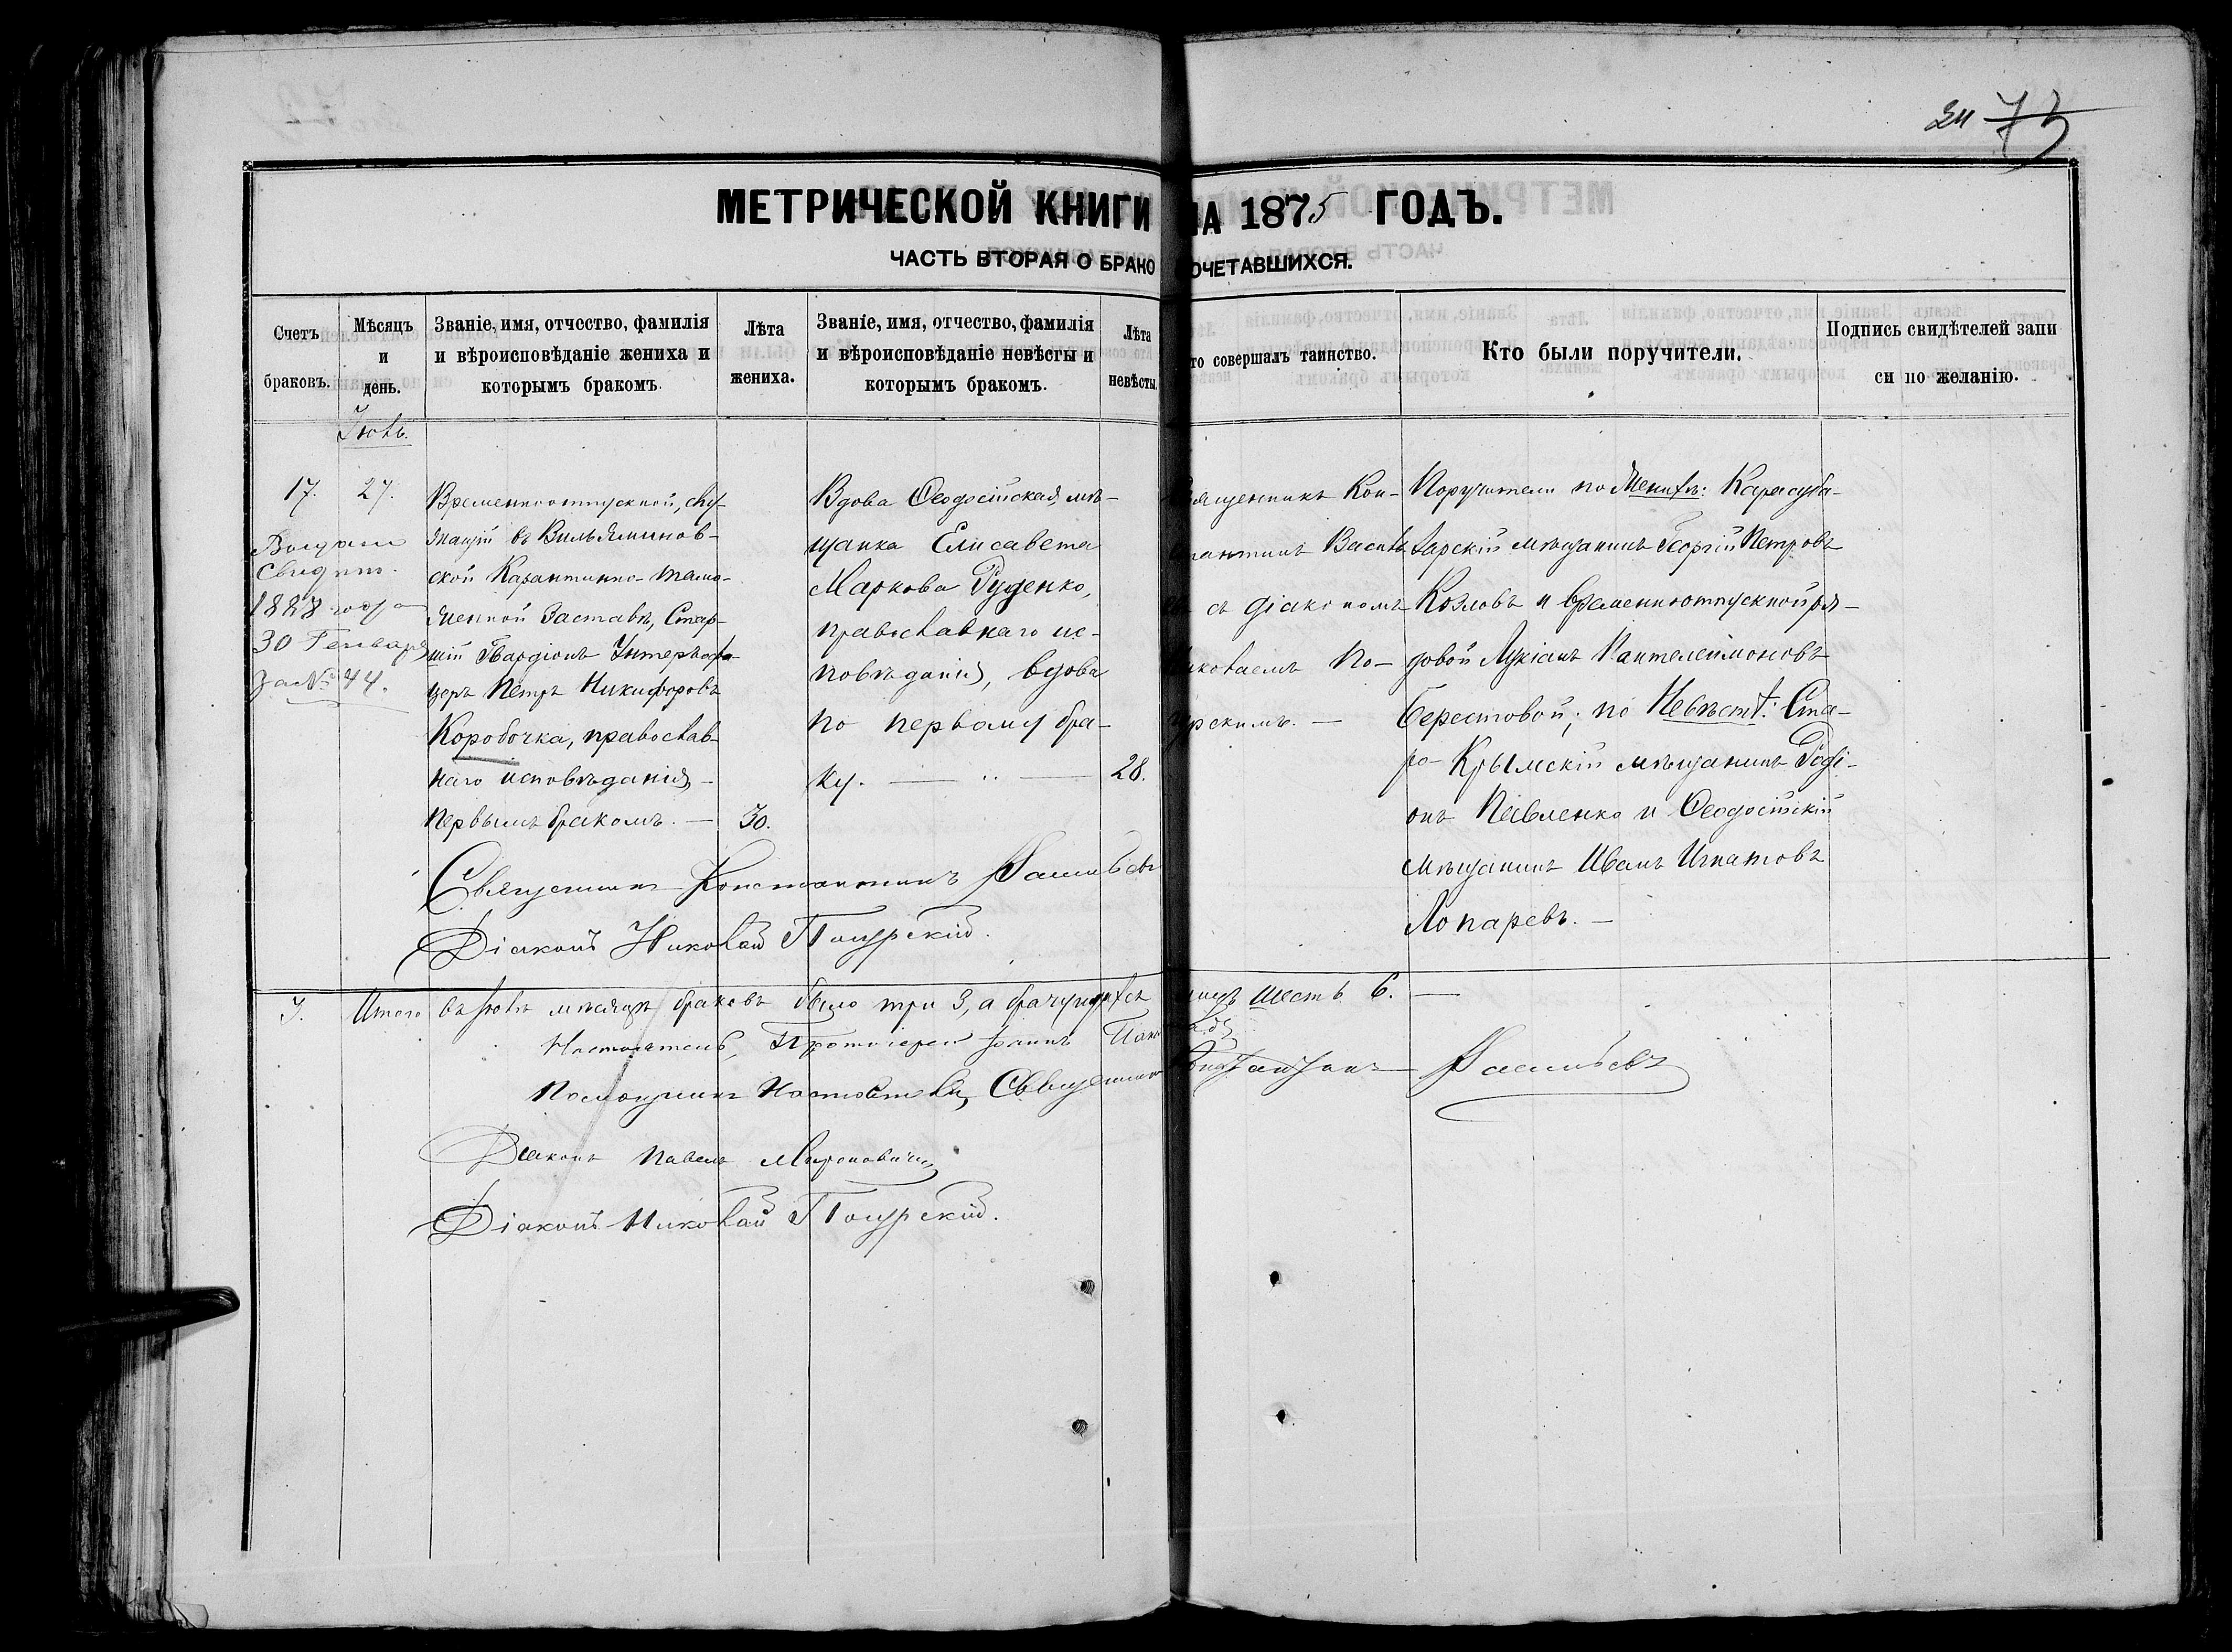 73
МЕТРИЧЕСКОЙ КНИГИ НА 1875 ГОДЪ.
ЧАСТЬ ВТОРАЯ О БРАКОСОЧЕТАВШИХСЯ.
Счетъ браковъ.
Мѣсяцъ и день.
Званіе, имя, отчество, фамилія
и вѣроисповѣданіе жениха и
которымъ бракомъ.
Лѣта
жениха.
Званіе, имя, отчество, фамилія
и вѣроисповѣданіе невѣсты и
которымъ бракомъ.
Лѣта
невѣсты.
то совершалъ таинство.
Кто были поручители.
Подпись свидѣтелей запи
си по желанію.
17.
Выдано
Свидѣт.
1887 года
30 Генваря
за № 44.
27.
Временноотпускной, слу-
жащій въ Вильяминов-
ской Карантинно-Тамо-
женной Заставѣ, Стар-
шій Гвардіонъ Унтеръ-офи-
церъ Петръ Никифоровъ
Коробочка, православ-
наго исповѣданія,
первымъ бракомъ. — 30.
Вдова Ѳеодосійская мѣ-
щанка Елисавета
Маркова Руденко,
православнаго ис-
повѣданія, вдова
по первому бра-
ку. — 28.
священникъ Кон-
стантинъ Василь
съ діакономъ
Николаемъ По-
Поручители по Женихѣ: Карасуба-
зарскій мѣщанинъ Георгій Петровъ
Козловъ и временноотпускной ря-
довой Лукіанъ Пантелеймоновъ
Берестовой; по Невѣстѣ: Ста-
ро-Крымскій мѣщанинъ Родi-
онъ Павленко и Ѳеодосійскій
мѣщанинъ Иванъ Игнатовъ
Лопаревъ. —
Священникъ Константинъ Васильевъ
Діаконъ Николай
3. Итого въ мѣсяцѣ браковъ было три 3, а брачущихся лицъ шесть 6. —
Настоятель, Протоіерей Іоаннъ
Помощникъ Настоятеля, Священникъ Константинъ Васильевъ
Діаконъ Павелъ Мироновичъ
Діаконъ Николай